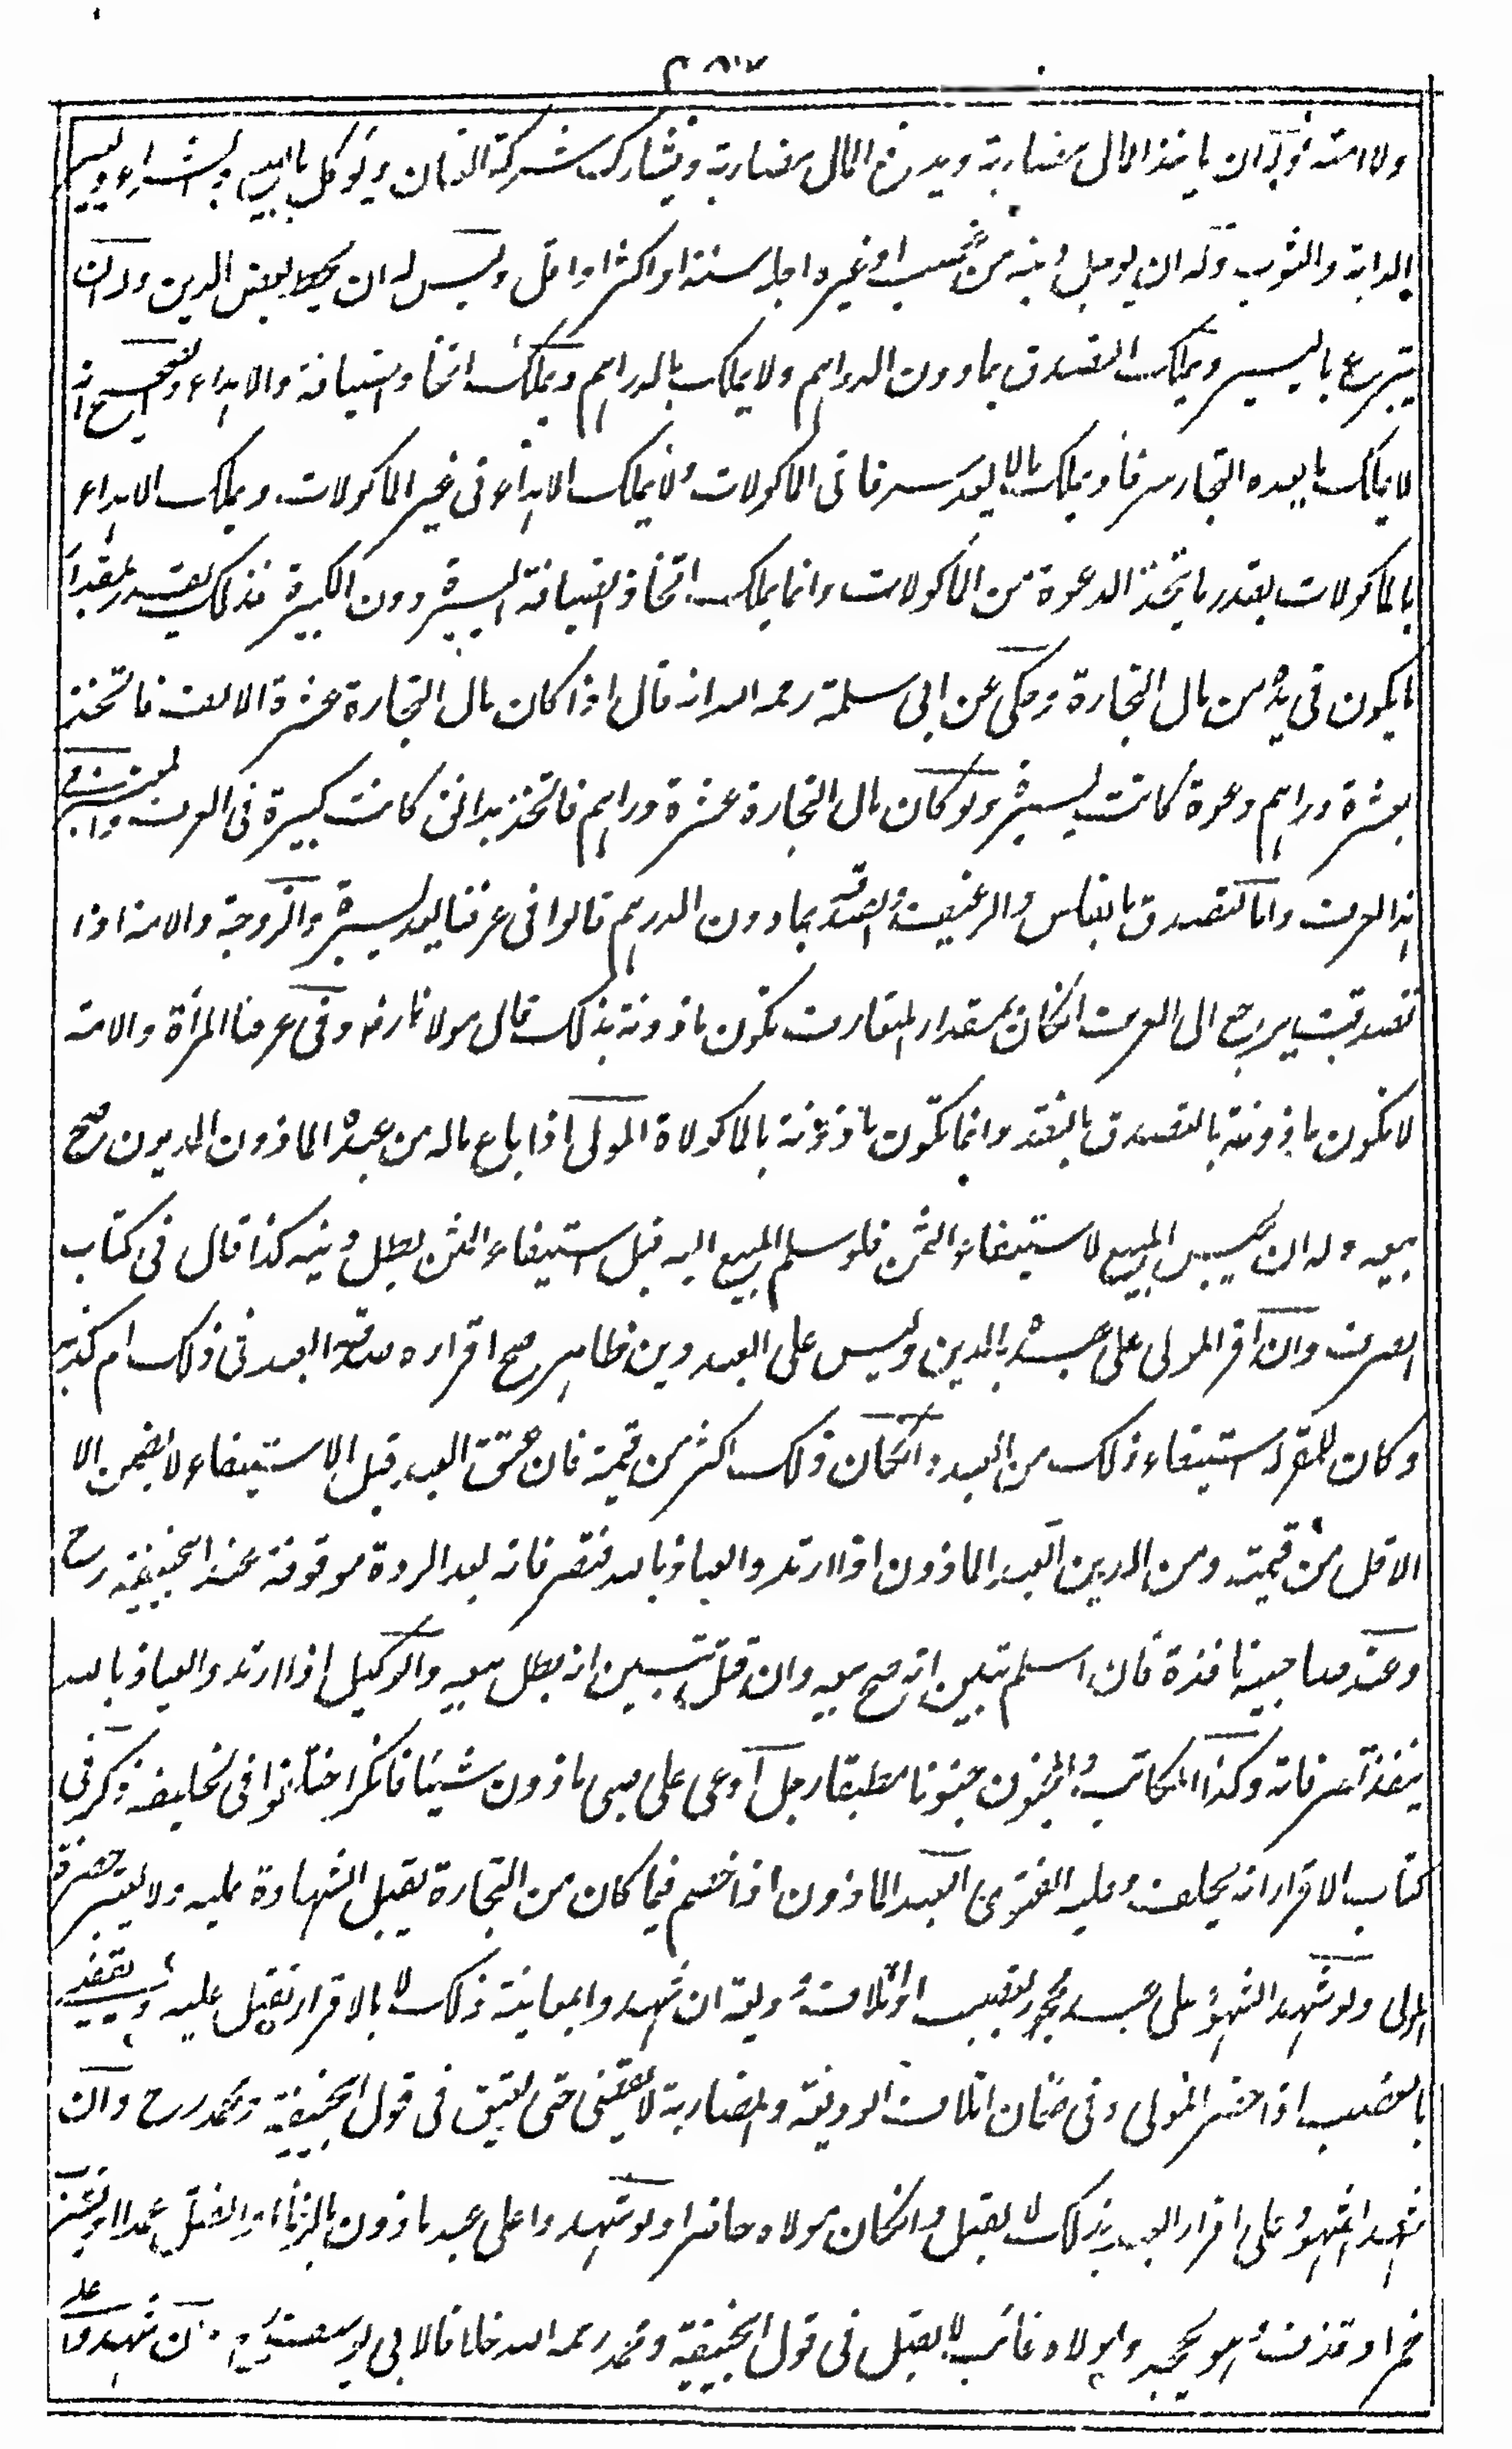 ولا امته وله ان ياخذ المال مضاربة ويدفع المال مضاربة ويشارك شركة العنان ويوكل بالبيع والشراء ويعير
الدابة والثوب وله ان يوجل دينه من غصب او غيره اجله سنة او اكثر او اقل وليس له ان يحط بعض الدين وله ان
يتبرع باليسير ويملك التصدق بما دون الدرهم ولا يملك بالدراهم ويملك اتخاذ الضيافة والاهداء والصحيح انه
لا يملك ما يعده التجار سرفا ويملك ما لا يعد سرفا في الماكولات ولا يملك الاهداء في غير الماكولات ويملك الاهداء
بالماكولات بقدر ما يتخذ الدعوة من الماكولات وانما يملك اتخاذ الضيافة اليسيرة دون الكبيرة فذلك بقدر مقدار
ما يكون في يده من مال التجارة وحكى عن ابي سلمة رحمه الله انه قال اذا كان مال التجارة عشرة الاف فاتخذ
بعشرة دراهم دعوة كانت يسيرة ولو كان مال التجارة عشرة دراهم فاتخذ بدانق كانت كبيرة في العرف
هذا العرف واما التصدق بالفلس والرغيف والتصدق بما دون الدرهم قالوا في عرفنا يعد يسيرة والزوجة والامة اذا
تصدقت يرجع الى العرف انكان بمقدار المتعارف تكون ماذونة بذلك قال مولانا رض وفي عرفنا المرأة والامة
لا تكون ماذونة بالتصدق بالنقد وانما تكون ماذونة بالماكولاة المولى اذا باع ماله من عبده الماذون المديون صح
بيعه وله ان يحبس المبيع لاستيفاء الثمن فلو سلم المبيع اليه قبل استيفاء الثمن بطل دينه كذا قال في كتاب
الصرف وان اقر المولى على عبده بالدين وليس على العبد دين ظاهر صح اقراره صدقه العبد في ذلك ام كذبه
وكان للمقر له استيفاء ذلك من العبد وانكان ذلك اكثر من قيمته فان عتق العبد قبل الاستيفاء لا يضمن الا
الاقل من قيمته ومن الدين العبد الماذون اذا ارتد والعياذ بالله فتصرفاته بعد الردة موقوفة عند ابيحنيفة رح
وعند صاحبيه نافذة فان اسلم تبين انه صح بيعه وان قتل تبين انه بطل بيعه والوكيل اذا ارتد والعياذ بالله
ينفذ تصرفاته وكذا المكاتب والمجنون جنونا مطبقا رجل ادعى على صبي ماذون شيئا فانكر اختلفوا في تحليفه ذكر في
كتاب الاقرار انه يحلف وعليه الفتوى العبد الماذون اذا خصم فيما كان من التجارة يقبل الشهادة عليه ولا يعتبر حضرة
المولى ولو شهد الشهود على عبد محجور بغصب او اتلاف وديعة ان شهدوا بمعاينة ذلك لا بالاقرار تقبل عليه ويقضى
بالغصب اذا حضر المولى وفي ضمان اتلاف الوديعة والمضاربة لا يقضى حتى يعتق في قول ابيحنيفة ومحمد رح وان
شهد الشهود على اقرار العبد بذلك لا يقبل وانكان مولاه حاضرا ولو شهدوا على عبد ماذون بالزنا او القتل عمدا او شرب
خمر او قذف وهو يجحد ومولاه غائب لا يقبل في قول ابيحنيفة ومحمد رحمه الله خلافا لابي يوسف رح وان شهدوا على